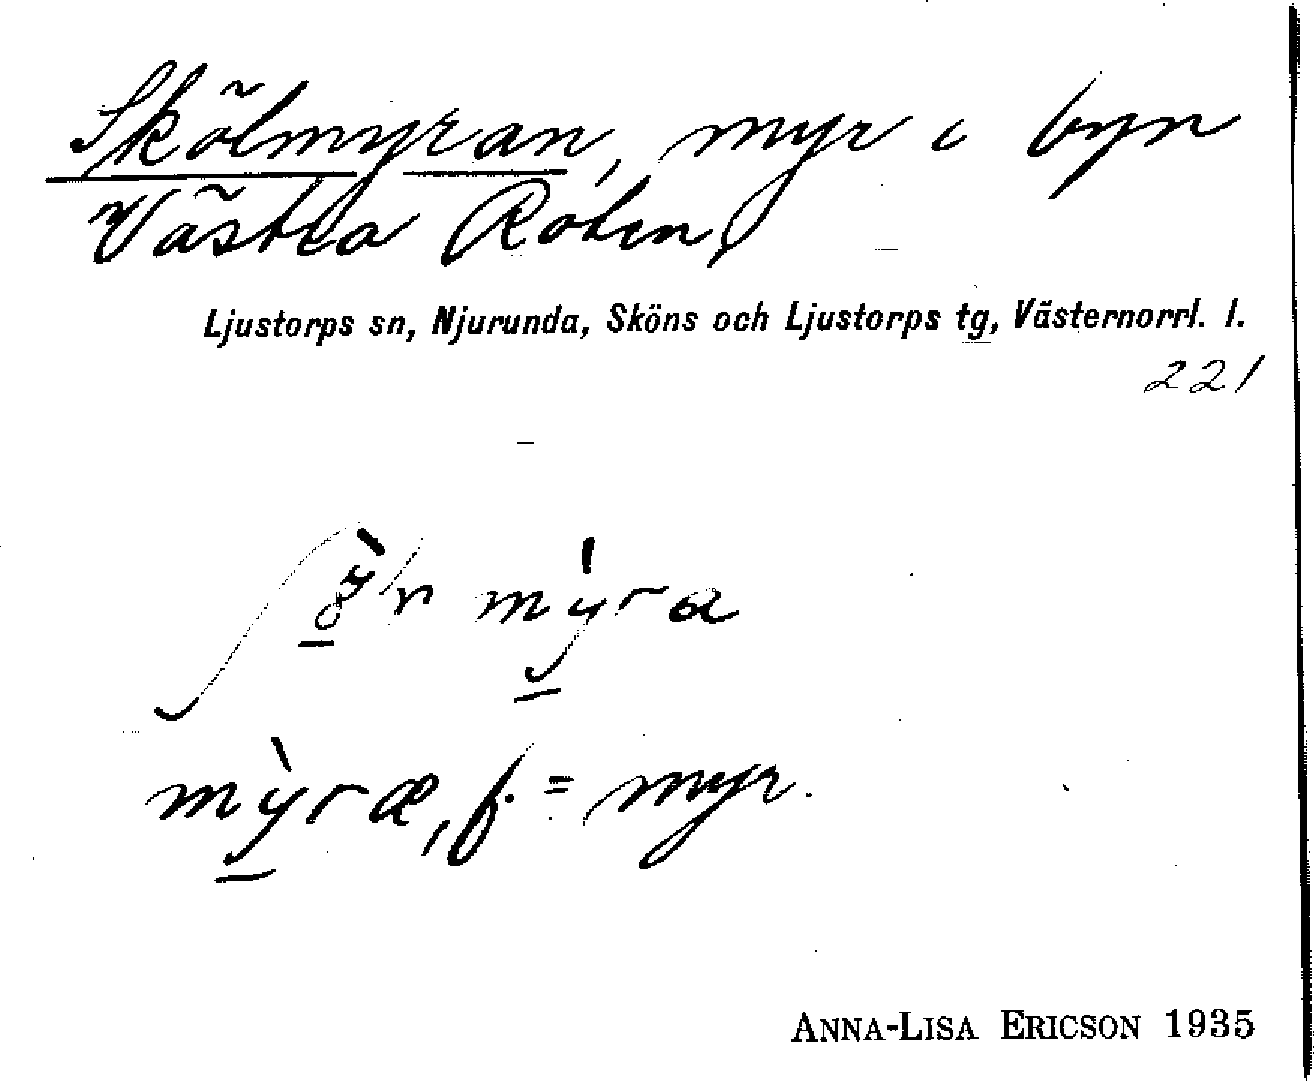 Skölmyran, myr i byn
Västra Roten,
Ljustorps sn, Njurunda, Sköns och Ljustorps tg, Västernorrl. l.
221
myra
mỳræ, f. = myr.
ANNA-LISA ERICSON 1935